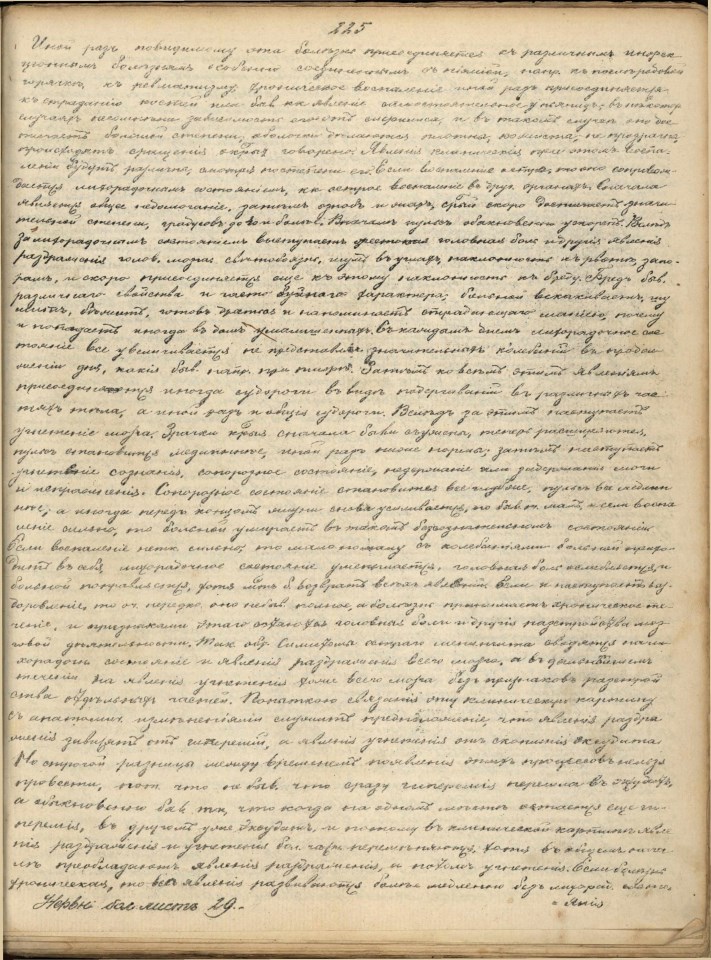 225
Иной разъ повидимому эта болѣзнь присоединяется къ различнымъ инфек
ціоннымъ болѣзнямъ особенно соединеннымъ съ напр. къ
горячкѣ, къ ревматизму, хроническое воспаленіе иной разъ присоединяется
къ страданію костей или бав. какъ явленіе самостоятельное
случаяхъ и въ такомъ случаѣ оно дос
тигаетъ большой степени, оболочки дѣлаются плотны,
происходятъ сращенія говорено. Явленія клиническія при этомъ воспа
леніи будутъ различны, смотря Если воспаленіе остро, то оно сопровож
дается лихорадочнымъ состояніемъ, какъ острое воспаленіе въ друг. органахъ. Сначала
является общее недомоганіе, затѣмъ ознобъ и жаръ, скоро достигаетъ значи
тельной степени, градусовъ до 40 и болѣе. Вначалѣ пульсъ обыкновенно ускорен. Вслѣдъ
за лихорадочнымъ состояніемъ выступаетъ жестокая головная боль и другія явленія
раздраженія голов. мозга: свѣтобоязнь, шумъ въ ушахъ, наклонность къ рвотѣ, запо-
рамъ, и скоро присоединяется еще къ этому наклонность къ бреду. Бредъ бав.
различнаго свойства и часто буйнаго характера; больной вскакиваетъ, шу
митъ, бѣжитъ, готовъ драться и напоминаетъ страдающаго маніею, почему
и попадаетъ иногда въ домъ умалишенныхъ. Съ каждымъ днемъ лихорадочное сос
тояніе все увеличивается не представляя значительныхъ колебаній въ продол
женіи дня, какія бав. напр. при тифѣ. Затѣмъ ко всѣмъ этимъ явленіямъ
присоединяются иногда судороги въ видѣ подергиваній въ различныхъ час
тяхъ тѣла, а иной разъ и общія судороги. Вслѣдъ за этимъ наступаетъ
угнетеніе мозга. Зрачки сначала бави съужены, теперь расширяются,
пульсъ становится медленнѣе, иной разъ ниже нормы; затѣмъ наступаетъ
угнетеніе сознанія, сопорозное состояніе, недержаніе или задержаніе мочи
и испражненія. Сопорозное состояніе становится все глубже, пульсъ медлен
нѣе, а иногда передъ концомъ жизни снова усиливается, но бав. оч. малъ, и если воспа
леніе сильно, то больной умираетъ въ такомъ безсознательномъ состояніи.
Если воспаленіе не такъ сильно, то мало по малу съ колебаніями больной прихо
дитъ въ себя, лихорадочное состояніе уменьшается, головная боль ослабѣваетъ, и
больной поправляется, хотя возвратъ всѣхъ явленій. Если и наступаетъ вы
здоровленіе, то оч. нерѣдко оно не бав. полное, а болѣзнь принимаетъ хроническое те
ченіе, и признаками этого остаются головная боль и другія разстройства моз
говой дѣятельности. Такъ обр. симптомы остраго менингита сводятся на ли
хорадочн. состояніе и явленія раздраженія всего мозга, а въ дальнѣйшемъ
теченіи на явленія угнетенія тоже всего мозга безъ признаковъ разстрой
ства отдѣльныхъ частей. Попыткою связанія эту клиническую картину
съ анатомич. измѣненіями служитъ предположеніе, что явленія раздра
женія зависятъ отъ гипереміи, а явленія угнетенія отъ скопленія экссудата
Но строгой разницы между временемъ появленія этихъ процессовъ нельзя
провести, пот. что не бав. что сразу гиперемія перешла въ экссудатъ,
а обыкновенно бав. такъ, что когда на одномъ мѣстѣ остается еще ги-
перемія, въ другомъ уже экссудатъ, и потому въ клинической картинѣ явле
нія раздраженія и угнетенія бол. части перемѣшиваются, хотя въ общемъ нача
лѣ преобладаютъ явленія раздраженія, и потомъ угнетенія. Если болѣзнь
хроническая, то всѣ явленія развиваются болѣе медленно безъ лихорад.
Нервн. бол. листъ 29. янія